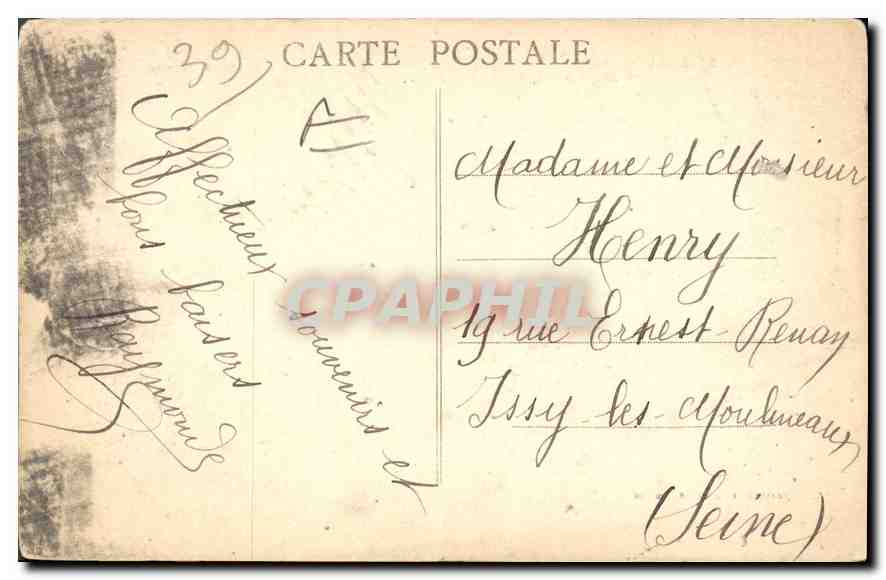 39
CARTE POSTALE
Affectueux souvenirs et
bons baisers
Raymonde
Madame et Monsieur
Henry
19 rue Ernest-Renan
Issy-les-Moulineaux
(Seine)
CPAPHIL